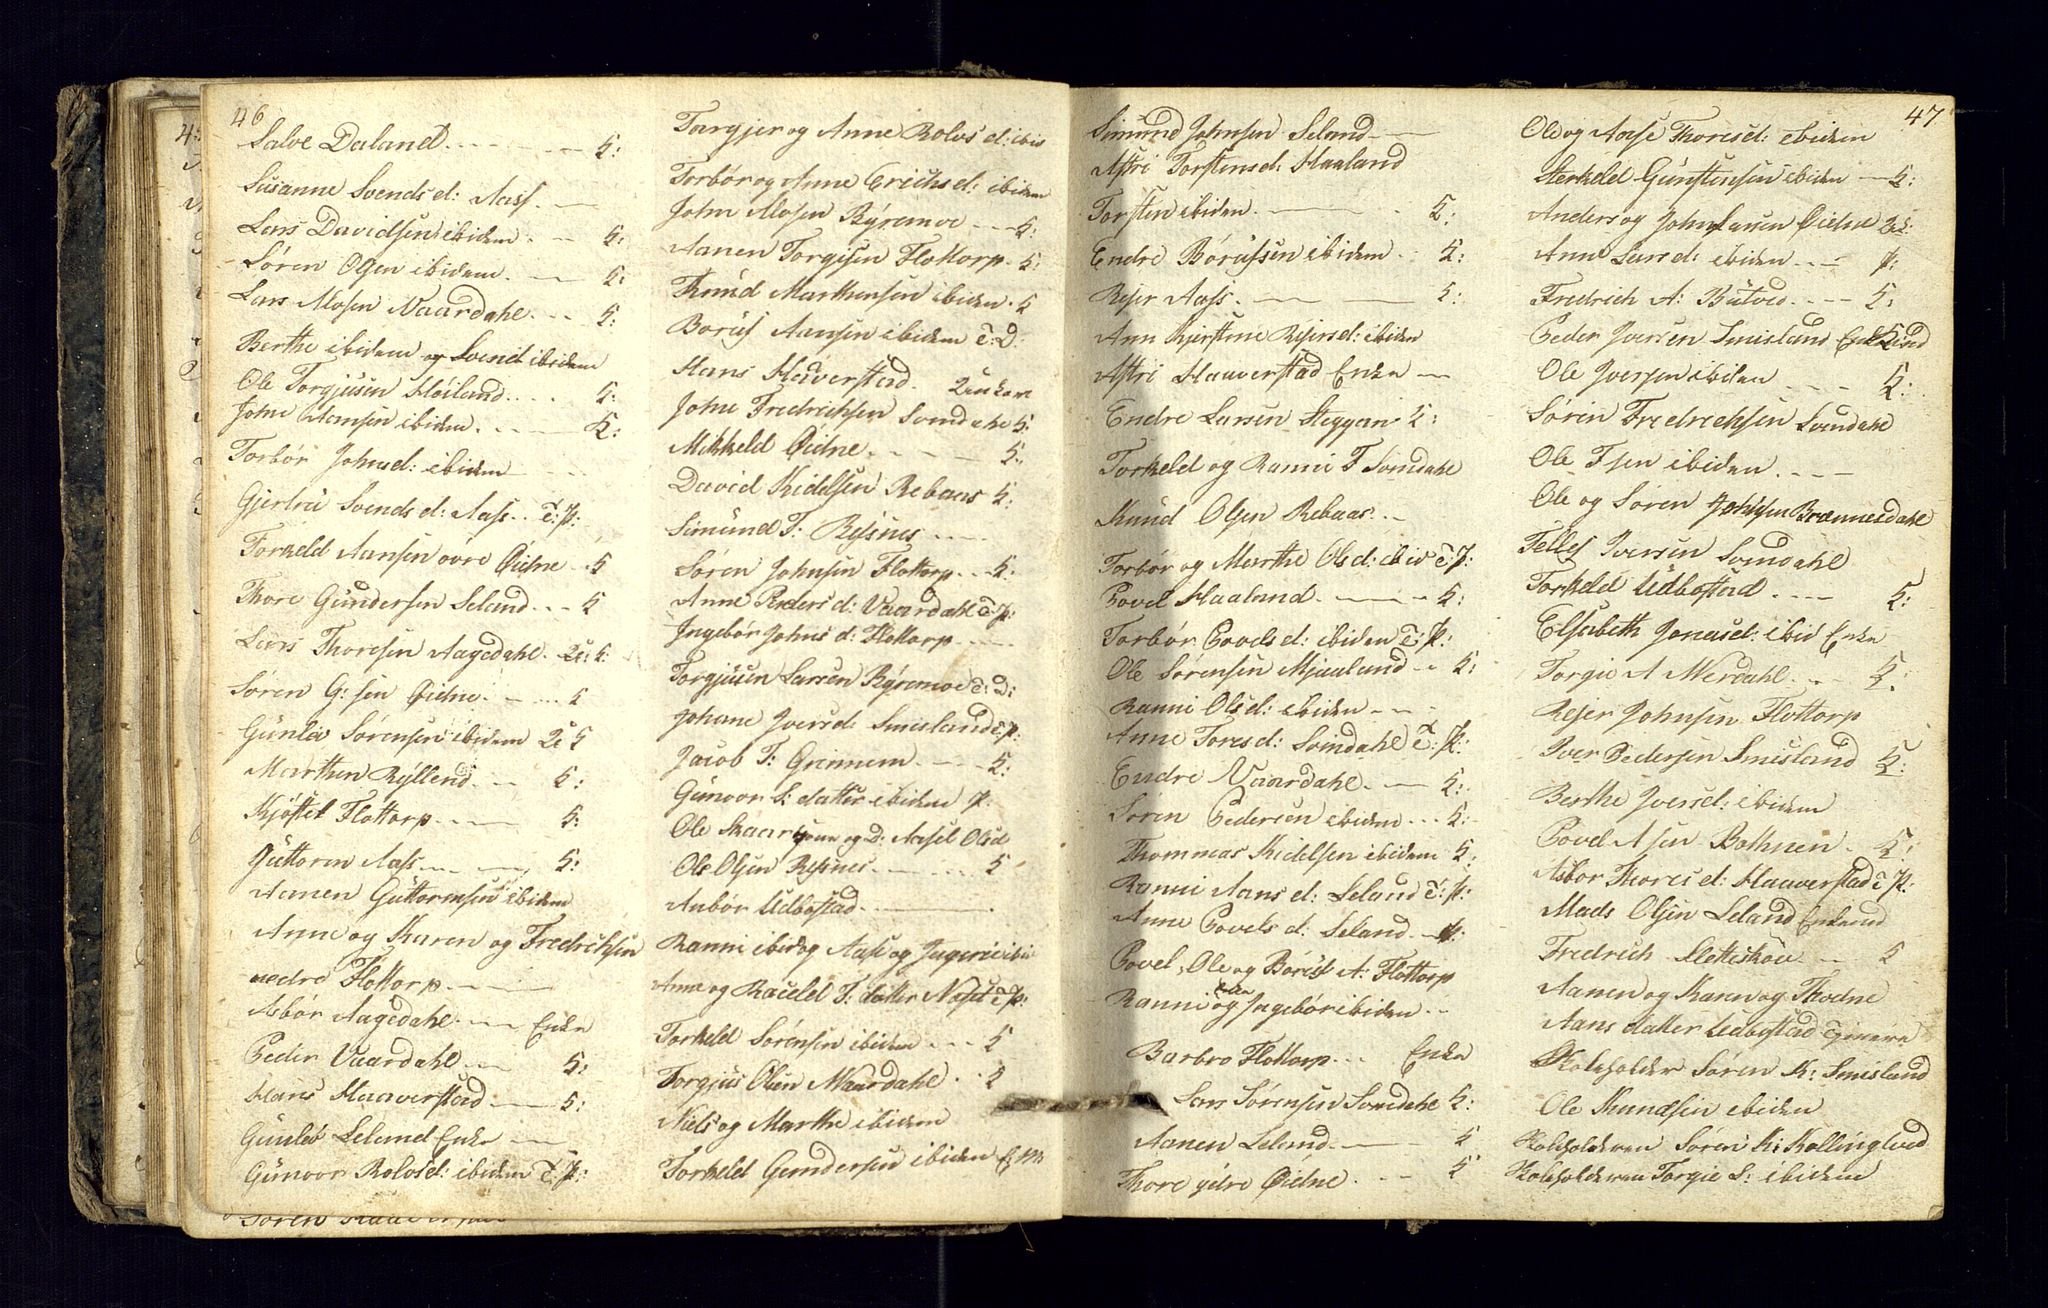 46
Salve Daland 5:
Susanne Svends d: Aass
Lars Davidsen ibidem 5:
Søren Olsen ibidem 5:
Lars Mosen Vaardahl 5:
Berthe ibidem og Svend ibidem
Ole Torgjusen Høiland 5:
John Aansen ibidem 5:
Torbør Johnsd: ibidem
Gjertrü Svends d: Aass T: P:
Torkeld Aansen övre Øidne 5
Thore Gündersen Seland 5
Lars Thoresen Aagedahl 2e: 5:
Søren G: sen Øidne 5
Günlev Sørensen ibidem 2e 5
Marthen Ryllend 5:
Kjøstel Flottorp 5:
Güttorm Aass 5:
Aanen Güttormsen ibidem
Anne og Karen og Fredrichsen
nedre Flottorp
Asbør Aagedahl Enke
Peder Vaardahl 5:
Hans Haaverstad 5:
Günlev Seland Enke
Günvor Rolvsd: ibidem T: P:
Torgjer og Anne Rolvs d: ibid
Torbør og Anne Erichs d: ibidem
John Mosen Ryremoe 5:
Aanen Torgisen Flottorp 5:
Knüd Marthensen ibidem 5
Borüf Aansen ibidem T: D:
Hans Haverstad
John Fredrichsen Svindahl 5:
Mikkeld Øidne 5:
David Kidelsen Rebaas 5:
Simünd T: Resnes
Søren Johnsen Flottorp 5:
Anne Peders d: Vaardahl T: P:
Ingebør Johns d: Flottorp
Torgjüsen Larsen Ryremoe T: D:
Johane Ivers d: Smisland T: P:
Jacob T: Grinnem 5:
Günvor S: datter ibidem P:
Ole Skaar og D: Aasel Olsd
Ole Olsen Resnes 5
Anbør Udbøstad
Ranni ibid og Aase og Ingerie ibid
Anne og Racheld T: datter T: P:
Torkeld Sørensen ibidem 5
Torgjus Olsen Waardahl 5
Niels og Marthe ibidem
Torkeld Gundersen ibidem
47
Simünd Johnsen Seland
Astri Torstensd: Haaland
Torsten ibidem 5:
Endre Børüfsen ibidem 5:
Rejer Aass 5:
Ann Kjerstine Rejersd: ibidem
Astri Haaverstad Enke
Endre Larsen Steggan 5:
Torkeld og Ranni T Svindahl
Knüd Olsen Rebaas
Torbør og Marthe Olsd: ibid T: P:
Povel Haaland 5:
Torbør Povels d: ibidem T: P:
Ole Sørensen Mjaaland 5:
Ranni Olsd: ibidem
Anne Tores d: Svindahl T: P:
Endre Vaardahl 5:
Søren Pedersen ibidem 5:
Thommas Kidelsen ibidem 5:
Ranni Aans d: Seland T: P:
Anne Povels d: Seland P:
Povel, Ole og Børüf A: Flottorp
Ranni og Ingebør ibidem
Barbro Flottorp Enke
Lars Sørensen Svindahl 5:
Aanen Seland 5
Thore ydre Øidne 5
Ole og Aase Thoresd: ibidem
Sterkeld Günstensen ibidem 5:
Anders og John Larsen Øidne
Ann Larsd: ibidem P:
Fredrich A: Bütved 5:
Peder Iversen Smisland
Ole Iversen ibidem 5:
Søren Fredrechsen Svindahl
Ole F sen ibidem
Ole og Søren Johnsen Brænnesdahl
Tellef Iversen Svindahl
Torkeld Udbøstad 5:
Elisabeth Jonasd: ibid Enke
Torgie A Werdahl 5:
Rejer Johnsen Flottorp
Iver Pedersen Smisland 5:
Berthe Iversd: ibidem
Povel A sen Bothnen 5:
Asbør Thores d: Haaverstad T: P:
Mads Olsen Seland Enkemd
Fredrich Slotteskou 5
Aanen og Karen og Thodne
Aans datter Udbøstad
Skoleholder Søren K: Smisland
Ole Knudsen ibidem
Skoleholderen Søren K: Kollinglued
Skoleholderen Torgie S: ibidem